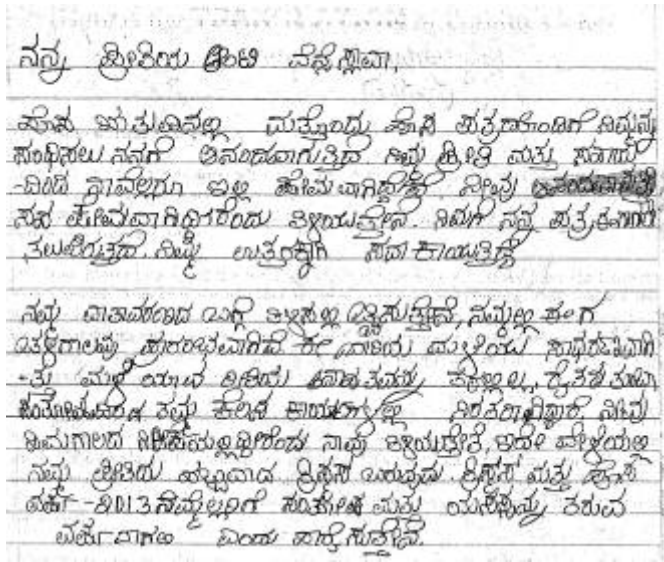 ನನ್ನ ಪ್ರೀತಿಯ ಆಂಟಿ ವೆನ್ಸೆಸ್ಲಾವಾ,
ಹೊಸ ಋತುವಿನಲ್ಲಿ ಮತ್ತೊಂದು ಹೊಸ ಪತ್ರದೊಂದಿಗೆ ನಿಮ್ಮನ್ನು
ಸಂಧಿಸಲು ನನಗೆ ಆನಂದವಾಗುತ್ತಿದೆ. ನಿಮ್ಮ ಪ್ರೀತಿ ಮತ್ತು ಸಹಾಯ
-ದಿಂದ ನಾವೆಲ್ಲರೂ ಇಲ್ಲಿ ಕ್ಷೇಮವಾಗಿದ್ದೇವೆ. ನೀವು
ಸಹ ಕ್ಷೇಮವಾಗಿದ್ದೀರೆಂದು ತಿಳಿಯುತ್ತೇನೆ. ನಿಮಗೆ ನನ್ನ ಪತ್ರ
ತಲುಪಿರುತ್ತದೆ. ನಿಮ್ಮ ಉತ್ತರಕ್ಕಾಗಿ ಸದಾ ಕಾಯುತ್ತಿದ್ದೆ
ನಮ್ಮ ವಾತಾವರಣದ ಬಗ್ಗೆ ತಿಳಿಸಲು ಇಚ್ಛಿಸುತ್ತೇನೆ, ನಮ್ಮಲ್ಲಿ ಈಗ
ಚಳಿಗಾಲವು ಪ್ರಾರಂಭವಾಗಿದೆ ಈ ಬಾರಿಯ ಮಳೆಯು ಸಾಧಾರಣವಾಗಿ
-ತ್ತು ಮಳೆ ಯಾವ ರೀತಿಯ ಅನಾಹುತವನ್ನು ರೈತರು ತುಂಬಾ
ತಮ್ಮ ಕೆಲಸ ಕಾರ್ಯಗಳಲ್ಲಿ ನಿರತರಾಗಿದ್ದಾರೆ. ನೀವು
ಹಿಮಗಾಲದ ನಾವು ತಿಳಿಯುತ್ತೇವೆ, ಇದೇ ವೇಳೆಯಲ್ಲಿ
ನಮ್ಮ ಪ್ರೀತಿಯ ಹಬ್ಬವಾದ ಕ್ರಿಸ್ಮಸ್ ಬರುವುದು. ಕ್ರಿಸ್ಮಸ್ ಮತ್ತು ಹೊಸ
ವರ್ಷ -2013 ನಮ್ಮೆಲ್ಲರಿಗೆ ಸಂತೋಷ ಮತ್ತು ಯಶಸ್ಸನ್ನು ತರುವ
ವರ್ಷವಾಗಲಿ ಎಂದು ಹಾರೈಸುತ್ತೇನೆ.